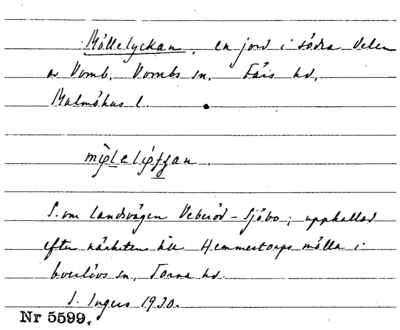 Möllelyckan, en jord i södra delen
av Vomb. Vombs sn. Färs hd.
Malmöhus l.
S. om landsvägen Veberöd - Sjöbo; uppkallad
efter närheten till Hemmestorps mölla i
Everlövs sn. Torna hd.
S. Ingers 1930.
Nr 5599.